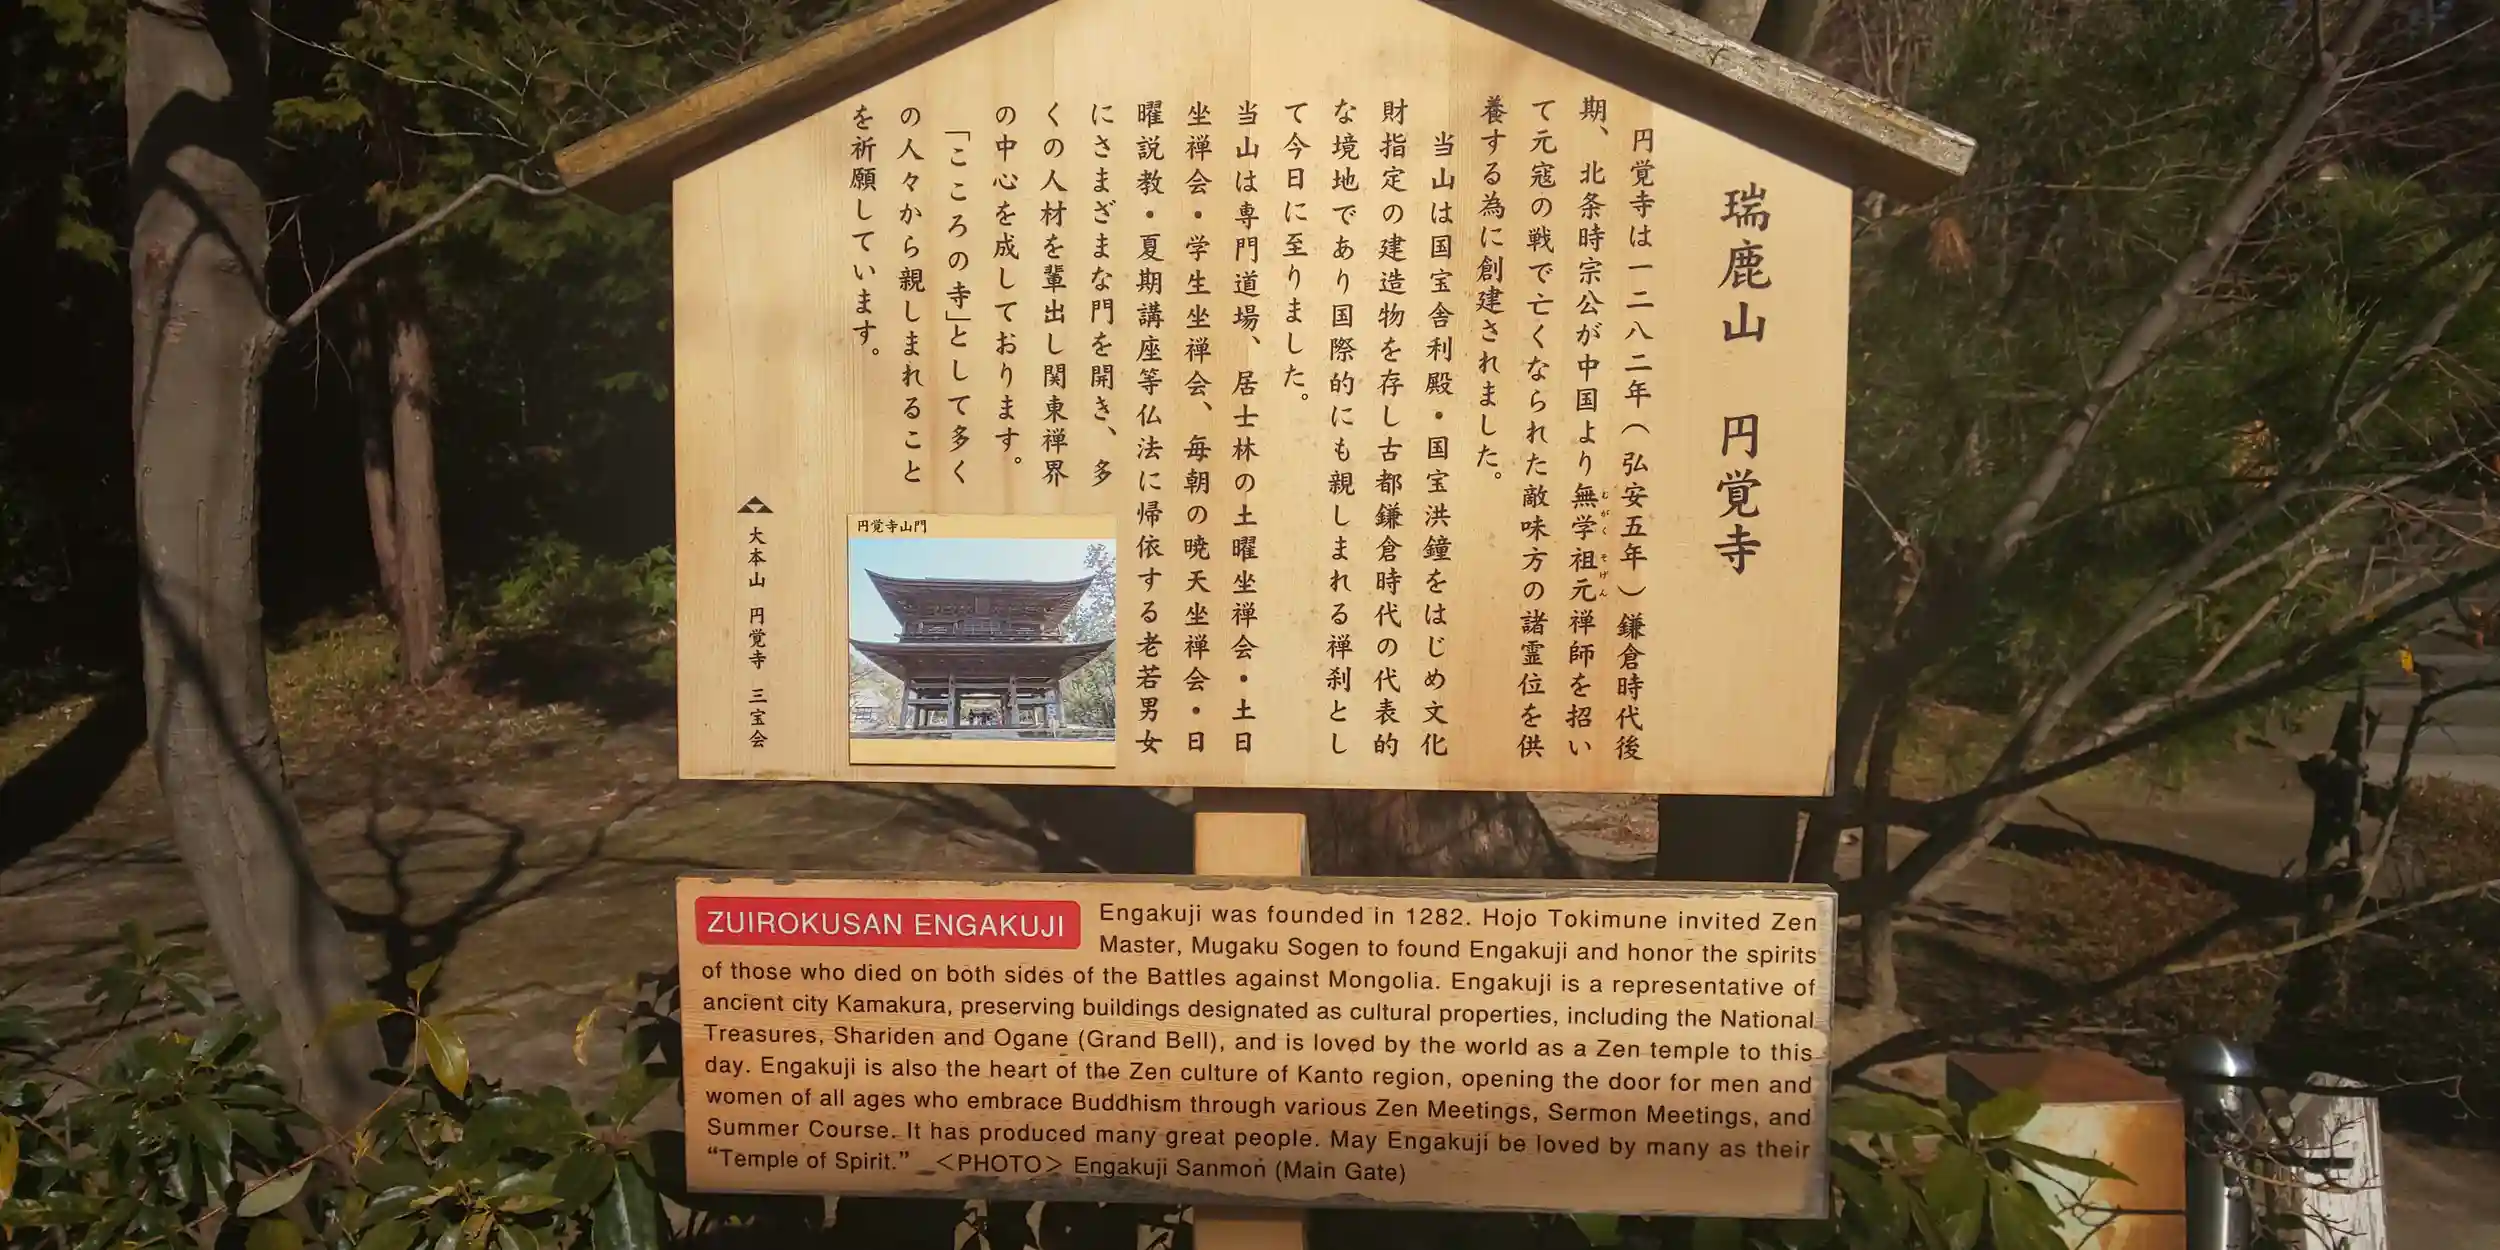 瑞鹿山 円覚寺
円覚寺は一二八二年(弘安五年)鎌倉時代後
期、北条時宗公が中国より無学祖元禅師を招い
むがく そげん
て元寇の戦で亡くなられた敵味方の諸霊位を供
養する為に創建されました。
当山は国宝舎利殿・国宝洪鐘をはじめ文化
財指定の建造物を存し古都鎌倉時代の代表的
な境地であり国際的にも親しまれる禅刹とし
て今日に至りました。
当山は専門道場、居士林の土曜坐禅会・土日
坐禅会・学生坐禅会、毎朝の暁天坐禅会・日
曜説教・夏期講座等仏法に帰依する老若男女
にさまざまな門を開き、多
くの人材を輩出し関東禅界
の中心を成しております。
「こころの寺」として多く
の人々から親しまれること
を祈願しています。
円覚寺山門
大本山 円覚寺 三宝会
ZUIROKUSAN ENGAKUJI
Engakuji was founded in 1282. Hojo Tokimune invited Zen
Master, Mugaku Sogen to found Engakuji and honor the spirits
of those who died on both sides of the Battles against Mongolia. Engakuji is a representative of
ancient city Kamakura, preserving buildings designated as cultural properties, including the National
Treasures, Shariden and Ogane (Grand Bell), and is loved by the world as a Zen temple to this
day. Engakuji is also the heart of the Zen culture of Kanto region, opening the door for men and
women of all ages who embrace Buddhism through various Zen Meetings, Sermon Meetings, and
Summer Course. It has produced many great people. May Engakuji be loved by many as their
“Temple of Spirit.” <PHOTO> Engakuji Sanmon (Main Gate)